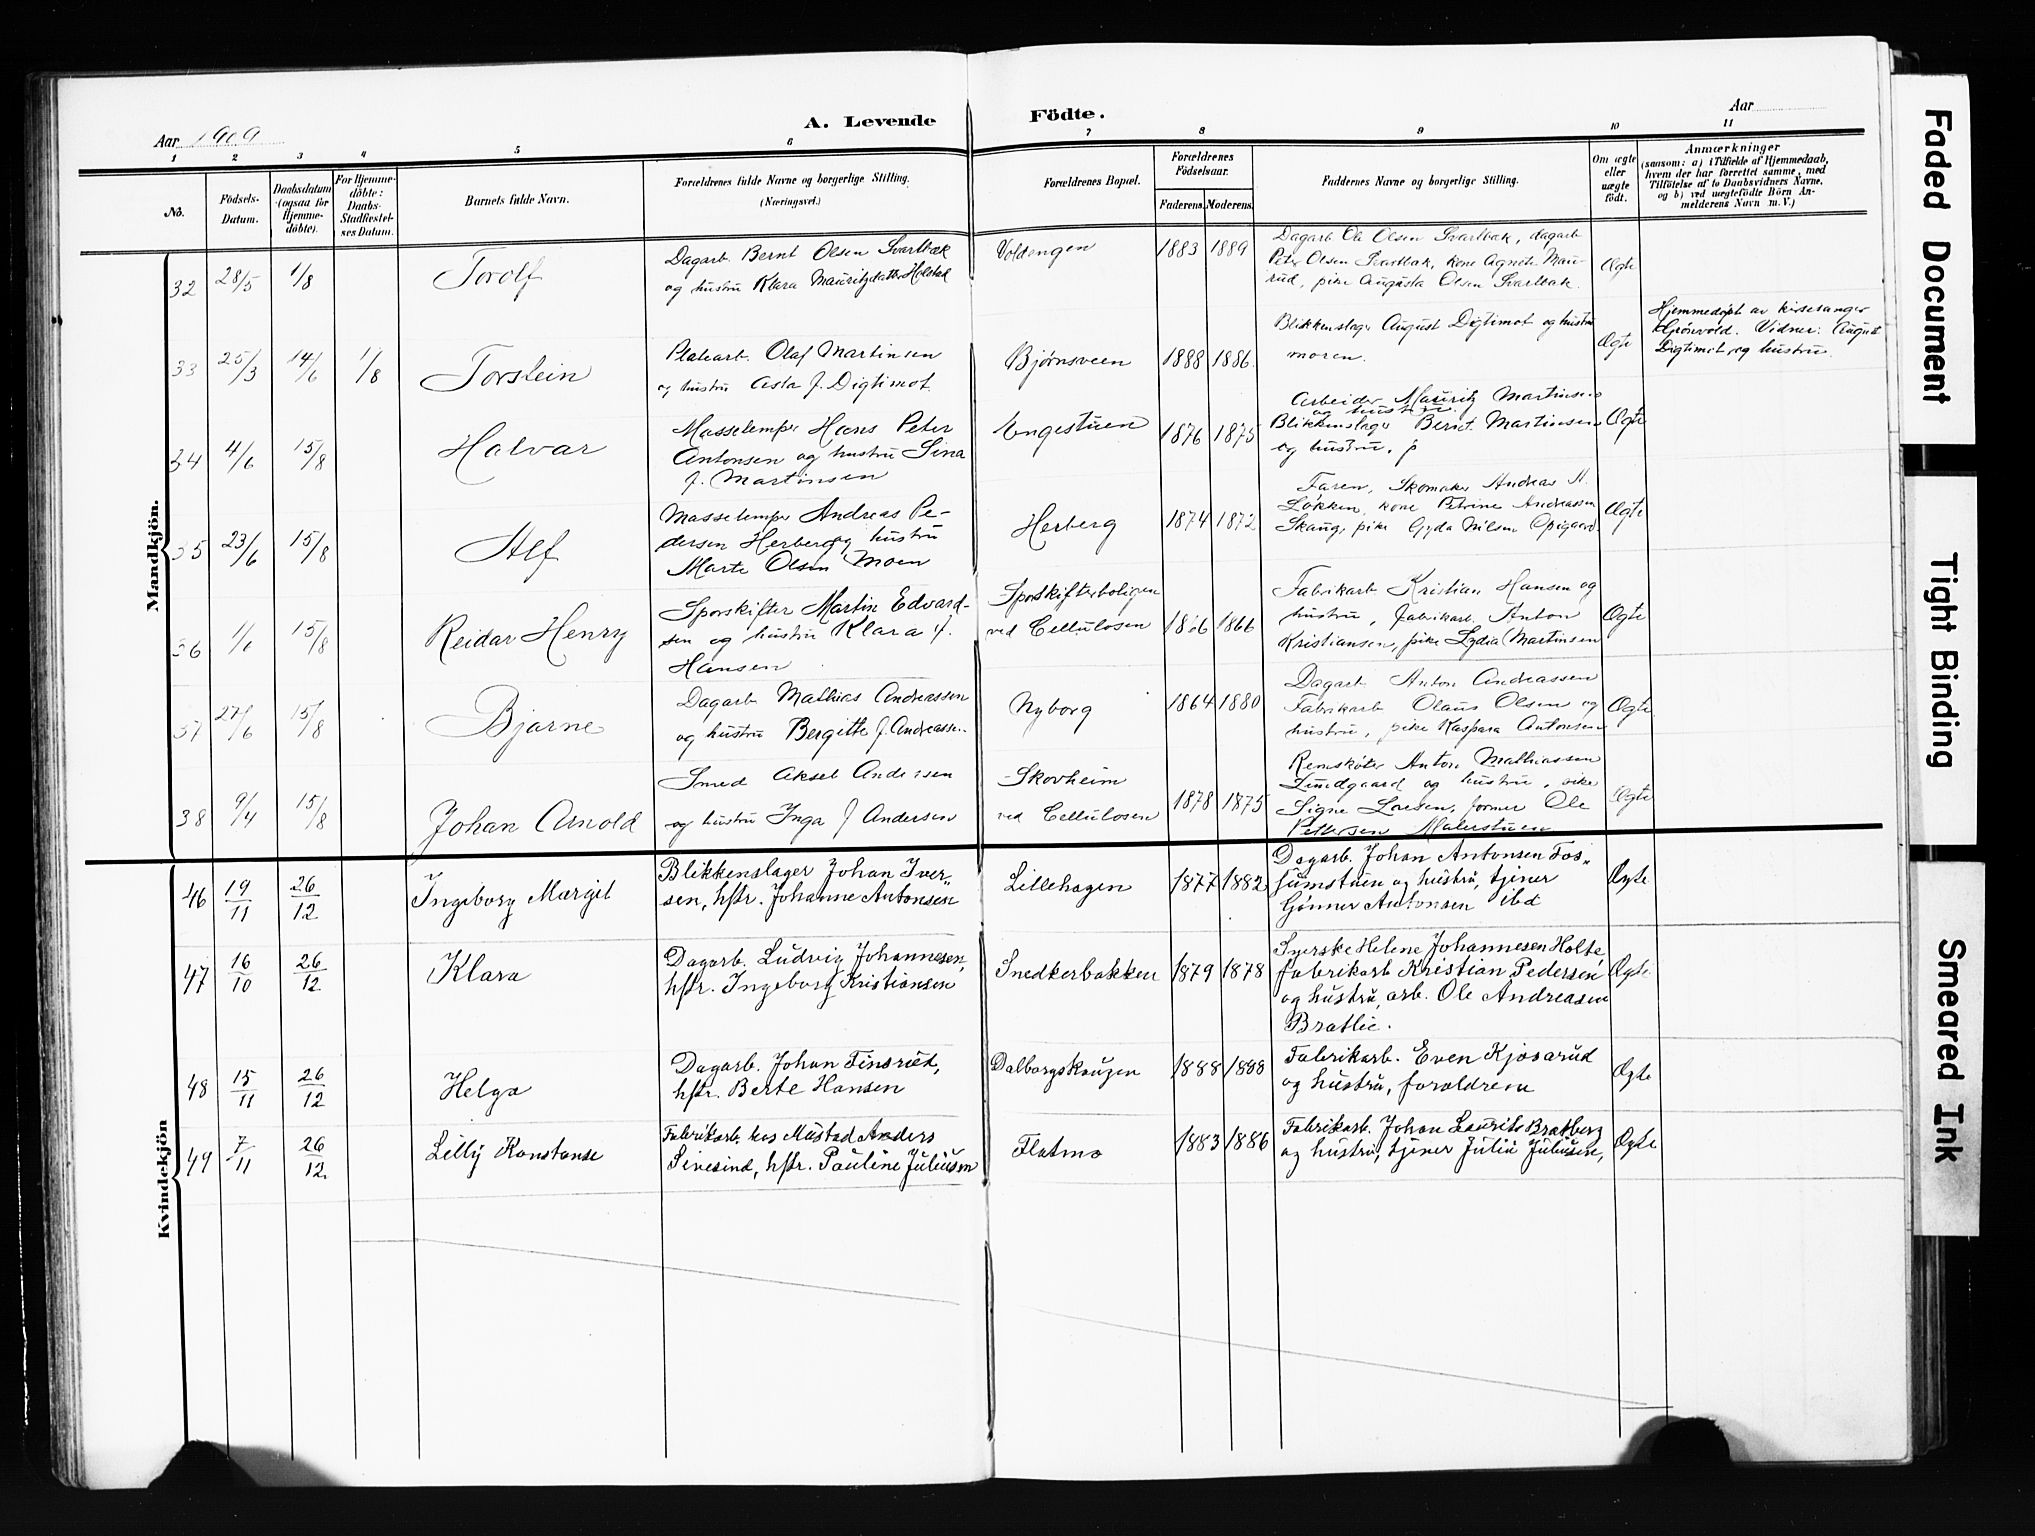 Aar 1909
A. Levende
Födte.
Aar
1 2 3 4 5 6 7 8 9 10 11
No.
Födsels-
Datum.
Daabsdatum
(ogsaa for
Hjemme-
döbte).
For Hjemme-
döbte:
Daabs-
Stadfæstel-
ses Datum.
Barnets fulde Navn.
Forældrenes fulde Navne og borgerlige Stilling.
(Næringsvei.)
Forældrenes Bopæl.
Forældrenes
Födselsaar.
Faderens. Moderens.
Faddernes Navne og borgerlige Stilling.
Om ægte
eller
uægte
födt.
Anmærkninger
(saasom: a) i Tilfælde af Hjemmedaab,
hvem der har forrettet samme, med
Tilföielse af to Daabsvidners Navne,
og b) ved uægtefödte Börn An-
melderens Navn m. V.)
Mandkjön.
32 28/5 1/8
Torolf
Dagarb. Bernt Olsen Svartbæk
og hustru Klara Mauritzdatter Holstad
Voldengen
1883 1889
Dagarb Ole Olsen Svartbæk, dagarb
Peter Olsen Svartbæk, kone Agnete Mau-
rud, pike Augusta Olsen Svartbæk.
Ægte
33 25/3 14/6 1/8
Torstein
Platearb. Olaf Martinsen
og hustru Asta f. Digtimot
Bjørnsveen
1888 1886
Blikkenslager August Digtimot og hustru
moren.
Ægte
Hjemmedøpt av kirkesanger
Grønvold. Vidner: August
Digtimot og hustru.
34 4/6 15/8
Halvar
Massetemper Hans Peter
Antonsen og hustru Sina
f. Martinsen
Engestuen
1876 1875
Arbeider Mauritz Martinsen
og hustru.
Blikkenslager Bernt Martinsen
og hustru.
Ægte
35 23/6 15/8
Alf
Massetemper Andreas Pe-
dersen Herberg og hustru
Marte Olsen Moen
Herberg
1874 1872
Faren, Skomaker Andreas A.
Løkken, kone Petrine Andreassen
Skaug, pike Gyda Nilsen Opigaard
Ægte
36 1/6 15/8
Reidar Henry
Sporskifter Martin Edvard-
sen og hustru Klara f.
Hansen
Sporskifterboligen
ved Cellulosen
1866 1866
Fabrikarb Kristian Hansen og
hustru, fabrikarb. Anton
Kristiansen, pike Lydia Martinsen
Ægte
37 27/6 15/8
Bjarne
Dagarb Mathias Andreassen
og hustru Bergitte f. Andreassen.
Nyborg
1864 1880
Dagarb Anton Andreassen
Fabrikarb Olaus Olsen og
hustru, pike Kaspara Antonsen
Ægte
38 9/4 15/8
Johan Arnold
Smed Aksel Andersen
og hustru Inga f Andersen
Skovheim
ved Cellulosen
1878 1875
Remskøter Anton Mathiassen
Lundgaard og hustru, pike
Signe Larsen, former Ole
Pettersen Malerstuen
Ægte
Kvindekjön
46 19/11 26/12
Ingeborg Margit
Blikkenslager Johan Iver-
sen, hstr. Johanne Antonsen
Lillehagen
1877 1882
Dagarb. Johan Antonsen Fos-
sumstuen og hustru, tjener
Gunner Antonsen ibd
Ægte
47 16/10 26/12
Klara
Dagarb. Ludvig Johannesen,
hstr. Ingeborg Kristiansen
Snedkerbakken
1879 1878
Syerske Helene Johannesen Holte,
fabrikarb Kristian Pedersen
og hustru, arb. Ole Andreasen
Bratlie.
Ægte
48 15/11 26/12
Helga
Dagarb. Johan Finsrud,
hstr. Berte Hansen
Dalborgskaugen
1888 1888
Fabrikarb. Even Kjøsarud
og hustru, forældrene
Ægte
49 7/11 26/12
Lilly Konstanse
Fabrikarb. hos Mustad Anders
Sivesind, hstr. Pauline Juliusen
Flatmo
1883 1886
Fabrikarb. Johan Laurits Bratberg
og hustru, tjener Julie Juliusen,
Ægte
Faded Document
Tight Binding
Smeared Ink